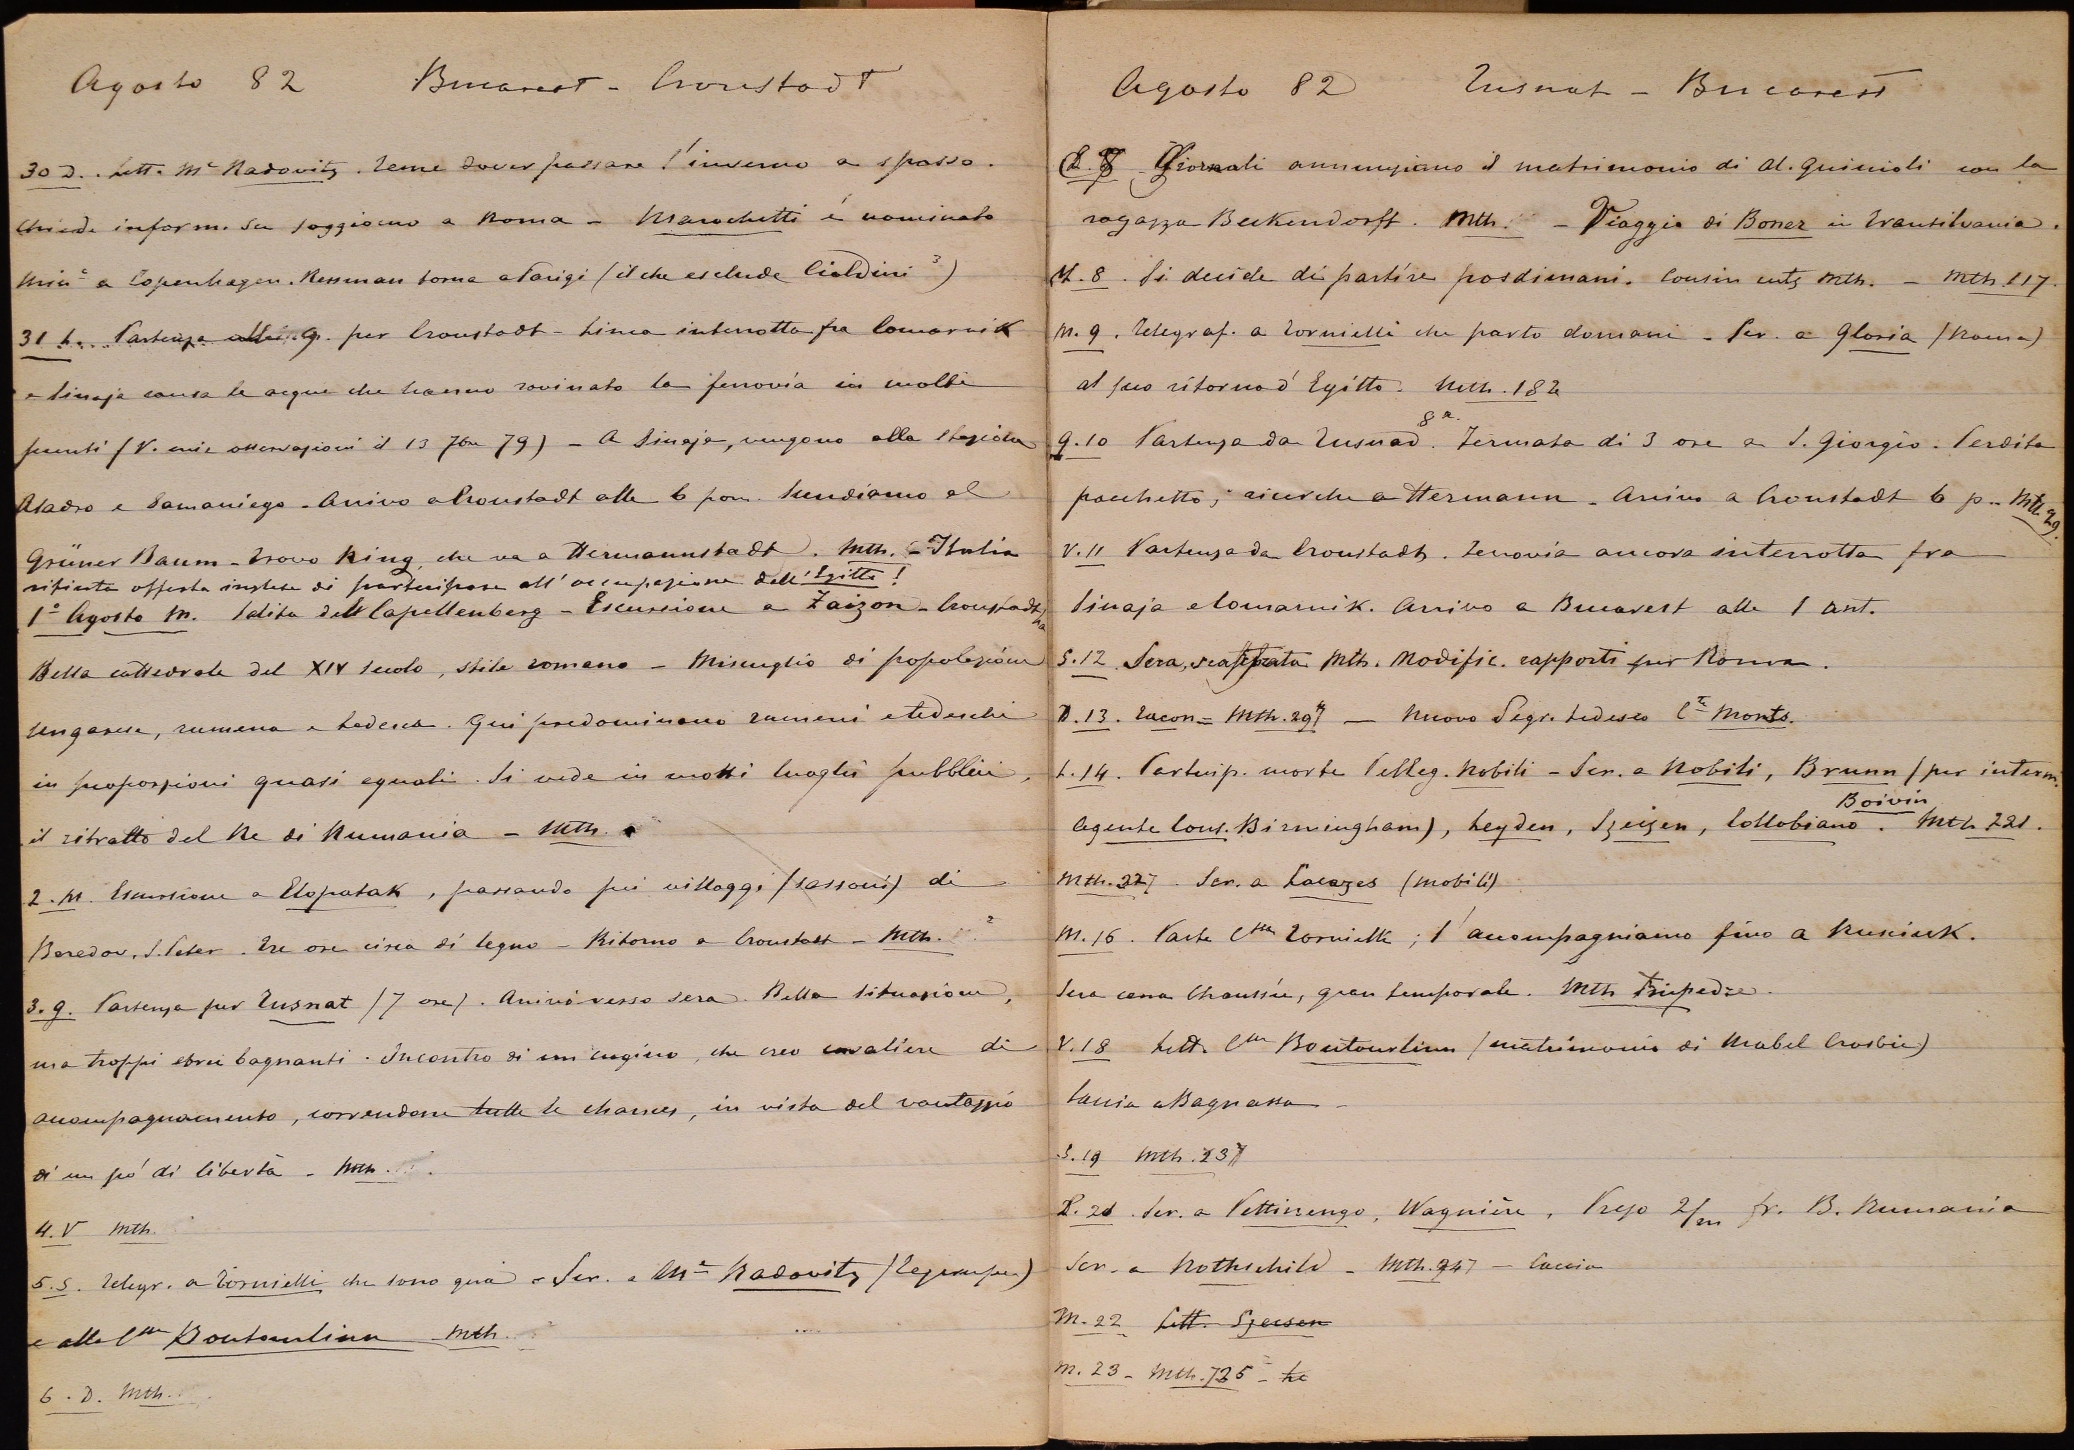 Agosto 82 Bucarest - Cronstadt
30 D. Lett. Mᵉ Radovitz. Teme dover passare l'inverno a spasso.
Chiede inform. su soggiorno a Roma - Marochetti é nominato
Minᵒ a Copenhagen. Ressman torna a Parigi (il che esclude Cialdini ?)
31 L. Partenza alle 9. per Cronstadt - Linea interrotta fra Comarnik
e Sinaja causa le acque che hanno rovinato la ferrovia in molti
punti (V. mie osservazioni il 13 7bre 79) - A Sinaja, vengono alla stazione
e Samaniego - Arrivo a Cronstadt alle 6 pom. Scendiamo al
Grüner Baum - Trovo King, che va a Hermannstadt. Mth. - Italia
rifiuta offerta inglese di partecipare all'occupazione dell'Egitto!
1º Agosto M. Salita del Capellenberg - Escursione a Zaizon - Cronstadt ha
Bella cattedrale del XIV secolo, stile romano - Miscuglio di popolazione
ungarese, rumena e tedesca. Qui predominano rumeni e tedeschi
in proporzioni quasi eguali. Si vede in molti luoghi pubblici,
il ritratto del Re di Rumania - Mth.
2. M. Escursione a Elopatak, passando pei villaggi (sassoni) di
S. Peter. Tre ore circa di legno - Ritorno a Cronstadt - Mth.
3. G. Partenza per Tusnat (7 ore). Arrivo verso sera. Bella situazione,
ma troppi ebrei bagnanti. Incontro di un cugino, che creo cavaliere di
accompagnamento, correndone tutte le chances, in vista del vantaggio
di un pó di libertà - Mth.
4. V Mth.
5. S. Telegr. a Tornielli che sono quà - Scr. a Mᵉ Radovitz
e alla Cssa Boutourlinn Mth.
6. D. Mth.
Agosto 82 Tusnat - Bucarest
Giornali annunziano il matrimonio di Al. Guiccioli con la
ragazza Beckendorff. Mth. - Viaggio di Boner in Transilvania.
M. 8. Si decide di partire posdimani. Cousin Mth. - Mth 117.
M. 9. Telegraf. a Tornielli che parto domani - Scr. a Gloria (Roma)
al suo ritorno d'Egitto. Mth. 182
G. 10 Partenza da Tusnad. 8 a. Fermata di 3 ore a S. Giorgio. Perdita
pacchetto; ricerche a Hermann - Arrivo a Cronstadt 6 p. - Mth. 29.
V. 11 Partenza da Cronstadt. Ferrovia ancora interrotta fra
Sinaja e Comarnik. Arrivo a Bucarest alle 1 ant.
S. 12 Sera, Mth. Modific. rapporti per Roma.
D. 13. Mth. 297 - Nuovo Segr. tedesco Cte Monts.
L. 14. Partecip. morte Pelleg. Nobili - Scr. a Nobili, Brunn (per interm.
Agente Cons. Birmingham), Leyden, Szeisen, Collobiano, Boivin. Mth 221.
Mth. 227 Scr. a Lacazes (mobili)
M. 16. Parte Cssa Tornielli; l'accompagniamo fino a Rusciuk.
Sera cena Chaussée, gran temporale. Mth
V. 18 Lett. Cssa Boutourlinn (matrimonio di Mabel Crosbie)
Caccia a Bagnassa -
S. 19 Mth. 237
Scr. a Pettinengo, Wagnière, Prezo 2/m fr. B. Rumania
Scr. a Rothschild - Mth. 247 - Caccia
M. 22 Lett. Szeisen
M. 23 - Mth. 725 -